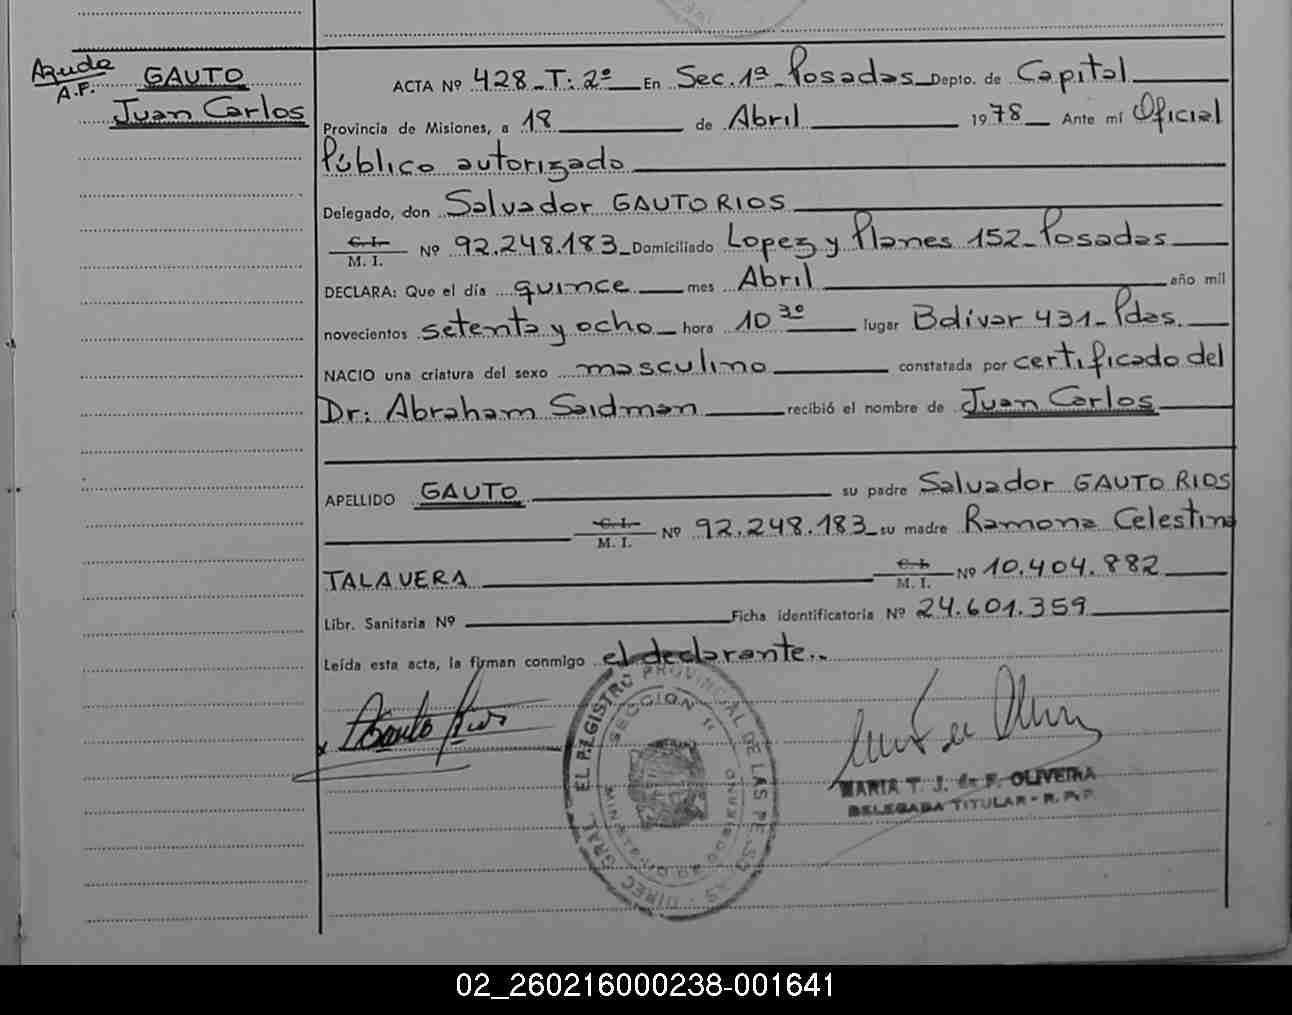 Ayuda
A.F.
GAUTO
Juan Carlos
ACTA Nº 428_T: 2º En Sec. 1ª Posadas Depto. de Capital
Provincia de Misiones, a 18 de Abril 1978 Ante mí Oficial
Público autorizado
Delegado, don Salvador GAUTO RIOS
C. I.
M. I. Nº 92.248.183 Domiciliado Lopez y Planes 152_ Posadas
DECLARA: Que el día quince mes Abril año mil
novecientos setenta y ocho hora 10 30 lugar Bolívar 431_ Pdas.
NACIO una criatura del sexo masculino constatada por certificado del
Dr: Abraham Saidman recibió el nombre de Juan Carlos
APELLIDO GAUTO su padre Salvador GAUTO RIOS
C. I.
M. I. Nº 92.248.183 su madre Ramona Celestina
TALAVERA C. I.
M. I. Nº 10.404.882
Libr. Sanitaria Nº Ficha identificatoria Nº 24.601.359
Leída esta acta, la firman conmigo el declarante..
Gauto Rios
DIREC. GRAL. EL REGISTRO PROVINCIAL DE LAS PERSONAS
SECCION 1ª
MINISTERIO DE GOBIERNO
MARIA T. J. de F. OLIVEIRA
DELEGADA TITULAR - R.P.P.
02_260216000238-001641